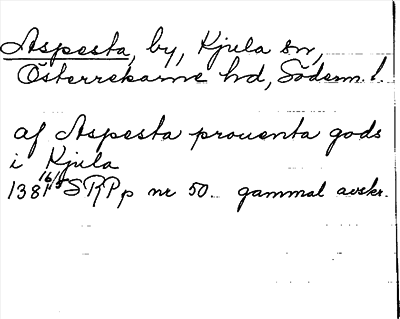 Aspesta, by, Kjula sn,
Österrekarne hd, Söderm. l.
af Aspesta prouenta gods
i Kjula
1381 16/5 SRPp nr 50. gammal avskr.